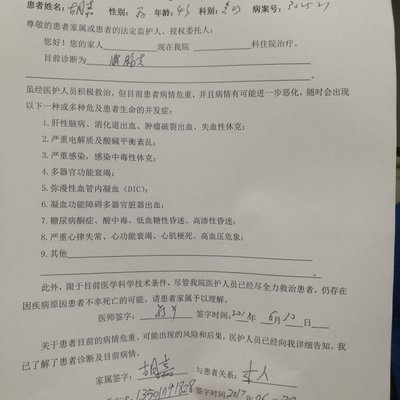 患者姓名：胡嘉 性别：女 年龄：45 科别： 病案号：
尊敬的患者家属或患者的法定监护人、授权委托人：
您好！您的家人 现在我院 科住院治疗。
目前诊断为
虽经医护人员积极救治，但目前患者病情危重，并且病情有可能进一步恶化，随时会出现
以下一种或多种危及患者生命的并发症：
1.肝性脑病、消化道出血、肿瘤破裂出血、失血性休克；
2.严重电解质及酸碱平衡紊乱；
3.严重感染，感染中毒性休克；
4.多器官功能衰竭；
5.弥漫性血管内凝血（DIC）；
6.凝血功能障碍多器官脏器出血；
7.糖尿病酮症、酸中毒、低血糖性昏迷、高渗性昏迷；
8.严重心律失常、心功能衰竭、心肌梗死、高血压危象；
9.其他
此外，限于目前医学科学技术条件，尽管我院医护人员已经尽全力救治患者，仍存在
因疾病原因患者不幸死亡的可能。请患者家属予以理解。
医师签字： 签字时间： 年 6月30日
关于患者目前的病情危重、可能出现的风险和后果，医护人员已经向我详细告知。我
已了解了患者诊断及目前病情。
家属签字：胡嘉 与患者关系：本人
13501091828 签字时间：2017年06